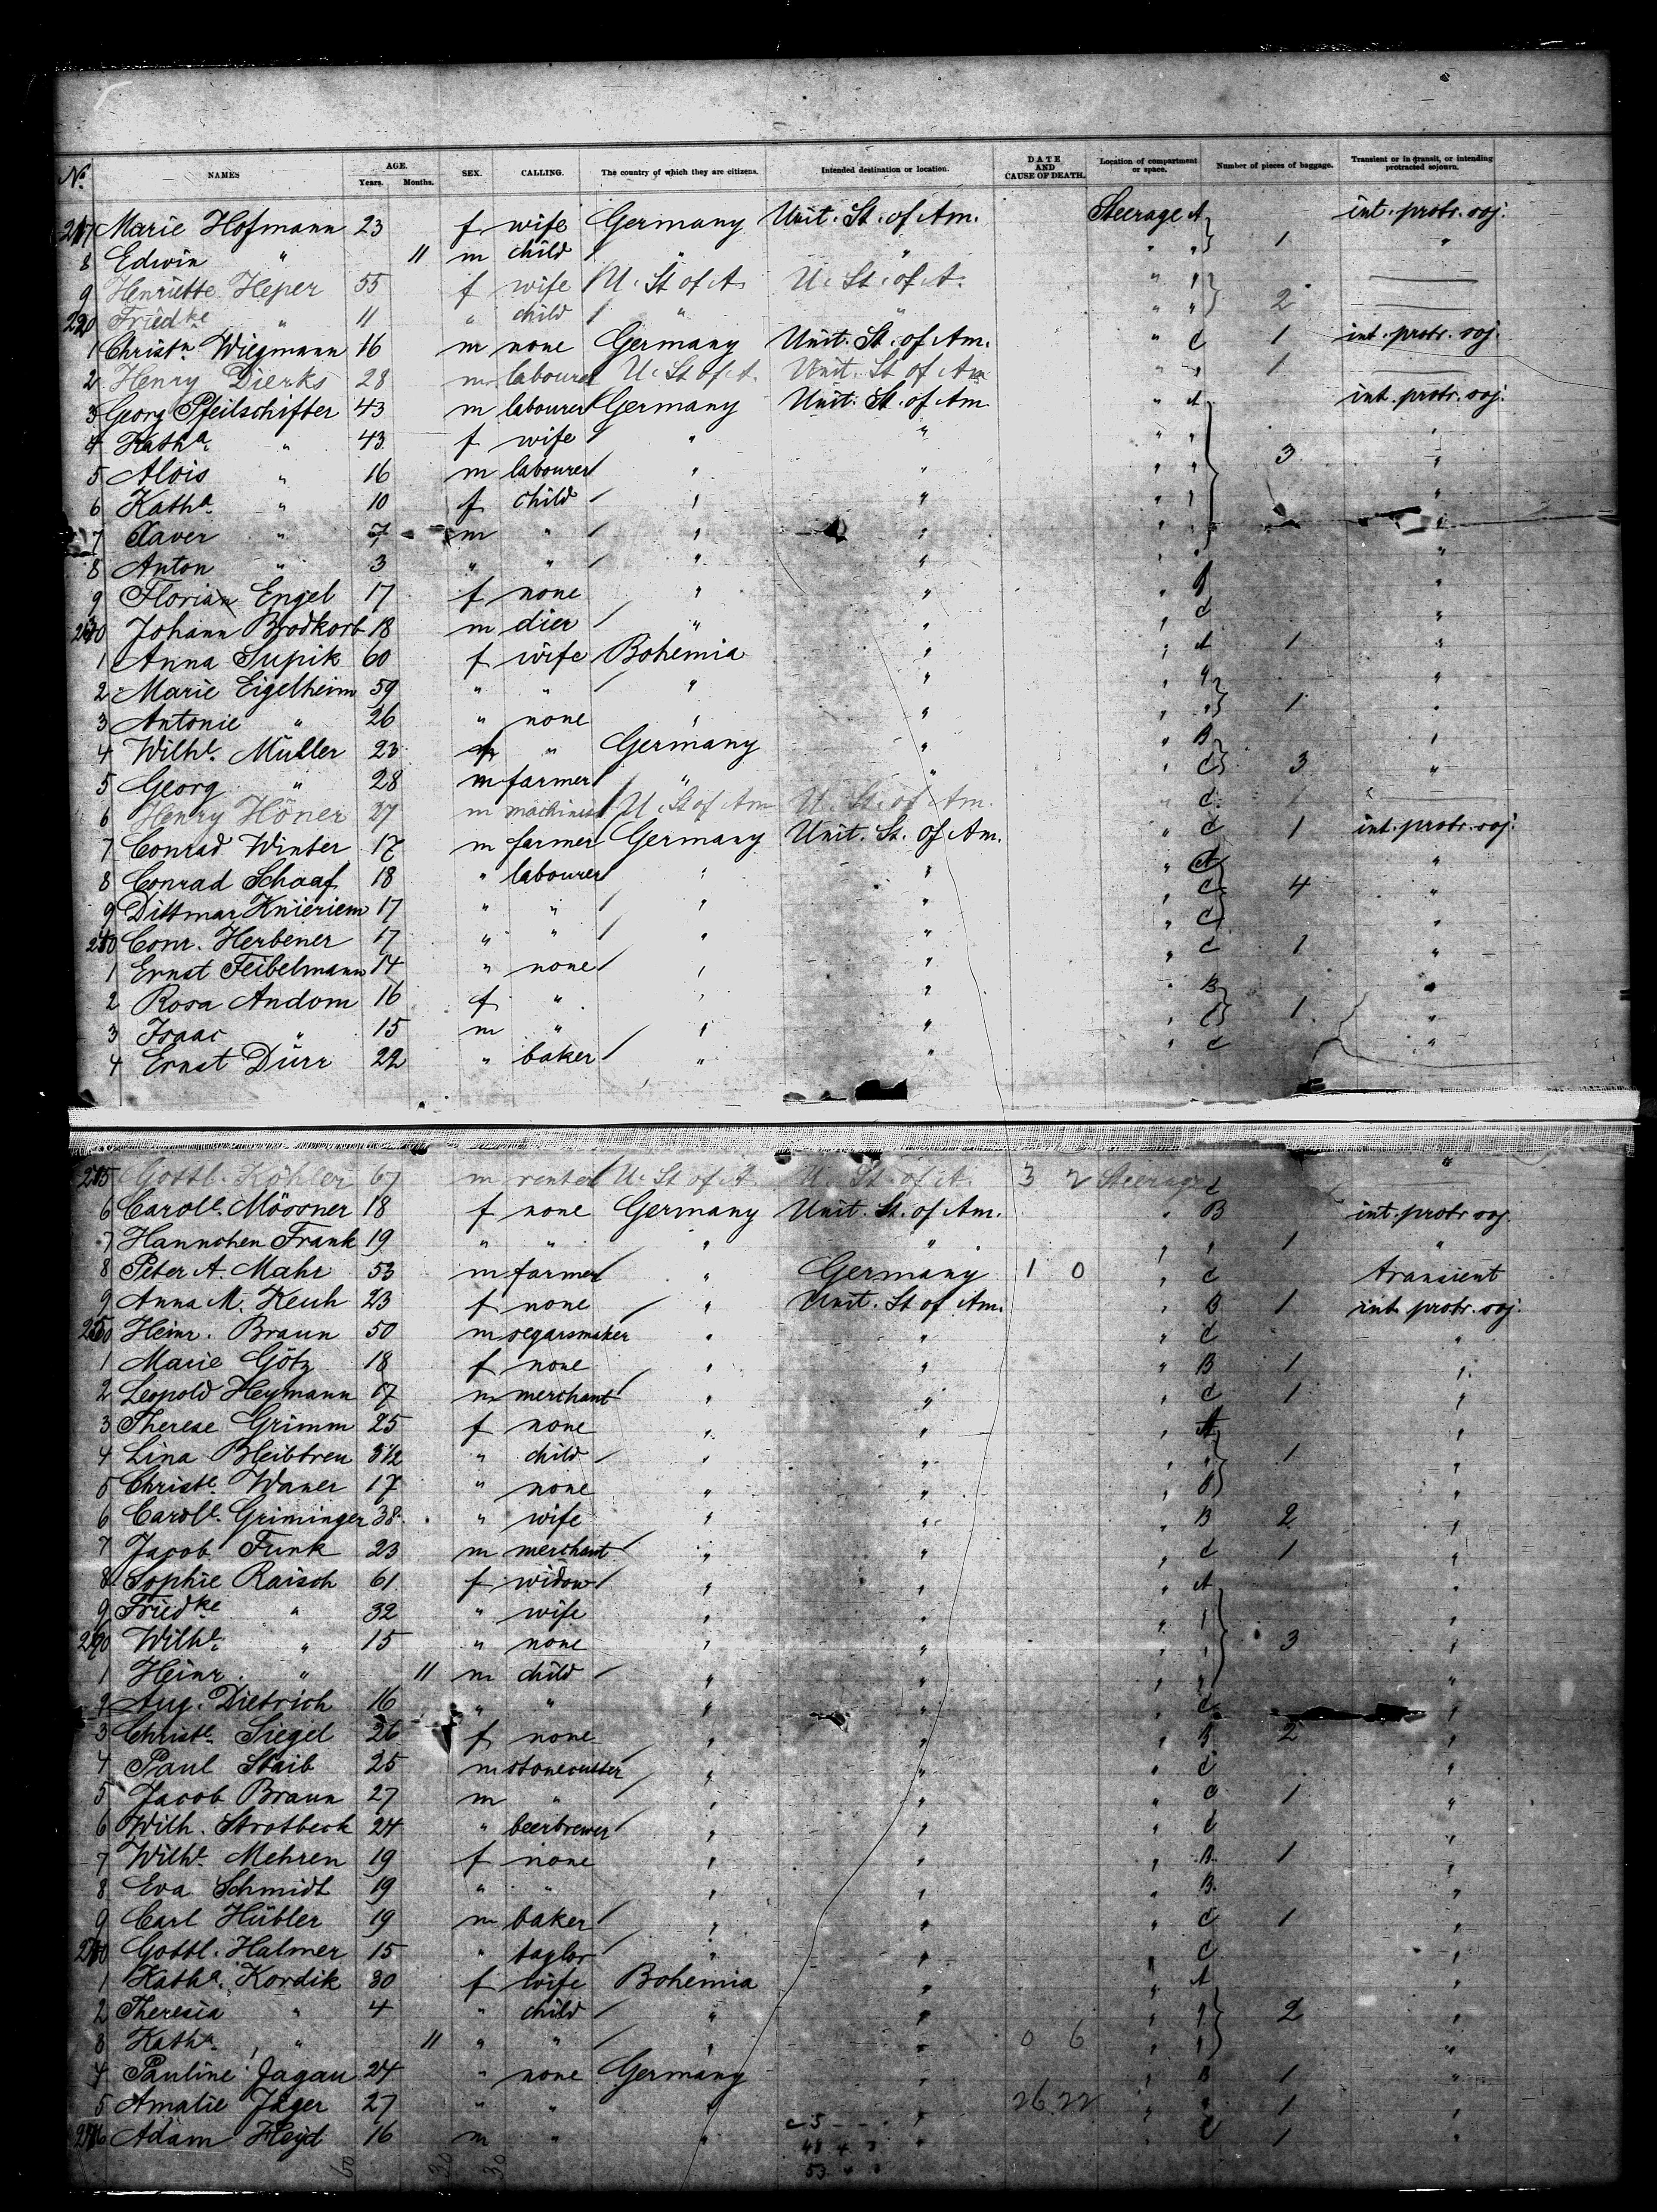 No. NAMES AGE. Years. Months. SEX. CALLING. The country of which they are citizens. Intended destination or location. DATE AND CAUSE OF DEATH. Location of compartment or space. Number of pieces of baggage. Transient or in transit, or intending protracted sojourn.
217 Marie Hofmann 23 f wife Germany Unit. St. of Am. Steerage A int. protr. soj.
8 Edwin " 11 m child " " " " 1 "
9 Henriette Heper 55 f wife U. St of A. U. St. of A. " "
220 Friedke " 11 " child " " " " 2
1 Christn. Wiegmann 16 m none Germany Unit. St. of Am. " C 1 int. protr. soj.
2 Henry Dierks 28 m labourer U. St of A. Unit. St of Am " " 1
3 Georg Pfeilschifter 43 m labourer Germany Unit. St. of Am " A int. protr. soj.
4 Katha. " 43 f wife " " " " "
5 Alois " 16 m labourer " " " " 3 "
6 Katha. " 10 f child " " " " "
7 Xaver " 7 m " " " " " "
8 Anton " 3 " " " " " " "
9 Florian Engel 17 f none " " " "
230 Johann Brodkorb 18 m dier " " " C "
1 Anna Supik 60 f wife Bohemia " " A 1 "
2 Marie Eigelheim 59 " " " " " " "
3 Antonie " 26 " none " " " " 1 "
4 Wilhe. Müller 23 f " Germany " " B "
5 Georg " 28 m farmer " " " C 3 "
6 Henry Höner 27 m machinist U. St of Am U. St. of Am. " C 1
7 Conrad Winter 17 m farmer Germany Unit. St. of Am. " C 1 int. protr. soj.
8 Conrad Schaaf 18 " labourer " " " C "
9 Dittmar Knieriem 17 " " " " " C 4 "
240 Conr. Herbener 17 " " " " " C "
1 Ernst Feibelmann 14 " none " " " C 1 "
2 Rosa Andom 16 f " " " " B "
3 Isaac " 15 m " " " " C 1 "
4 Ernst Dürr 22 " baker " " " C "
245 Gottl. Köhler 67 m renter U. St of A U. St. of A. 3 2 Steerage C "
6 Carole. Mössner 18 f none Germany Unit. St. of Am. " B int. protr soj.
7 Hannchen Frank 19 " " " " " " 1 "
8 Peter A. Mahr 53 m farmer " Germany 1 0 " C transient
9 Anna M. Keuh 23 f none " Unit. St of Am. " B 1 int. protr. soj.
250 Heinr. Braun 50 m segarsmaker " " " C "
1 Marie Götz 18 f none " " " B 1 "
2 Leopold Heymann 17 m merchant " " " C 1 "
3 Therese Grimm 25 f none " " " A "
4 Lina Bleibtreu 3 1/2 " child " " " " 1 "
5 Christe. Waner 17 " none " " " B "
6 Carole. Griminger 38 " wife " " " B 2 "
7 Jacob Funk 23 m merchant " " " C 1 "
8 Sophie Raisch 61 f widow " " " A "
9 Friedke " 32 " wife " " " " "
260 Wilhe. " 15 " none " " " " 3 "
1 Heinr. " 11 m child " " " " "
2 Aug. Dietrich 16 " " " " " C "
3 Christe. Siegel 26 f none " " " B 2 "
4 Paul Staib 25 m stonecutter " " " C "
5 Jacob Braun 27 m " " " " C 1 "
6 Wilh. Strotbeck 24 " beerbrewer " " " C "
7 Wilhe. Mehren 19 f none " " " B 1 "
8 Eva Schmidt 19 " " " " " B. "
9 Carl Hübler 19 m baker " " " C 1 "
270 Gottl. Halmer 15 " taylor " " " C "
1 Katha. Kordik 30 f wife Bohemia " " A "
2 Theresia " 4 " child " " " " 2 "
3 Katha. " 11 " " " " 0 6 " " "
4 Pauline Jagau 24 " none Germany " " B 1 "
5 Amalie Jäger 27 " " " " 26 22 " " 1 "
276 Adam Heyd 16 m " " " C 1 "
60 30 30